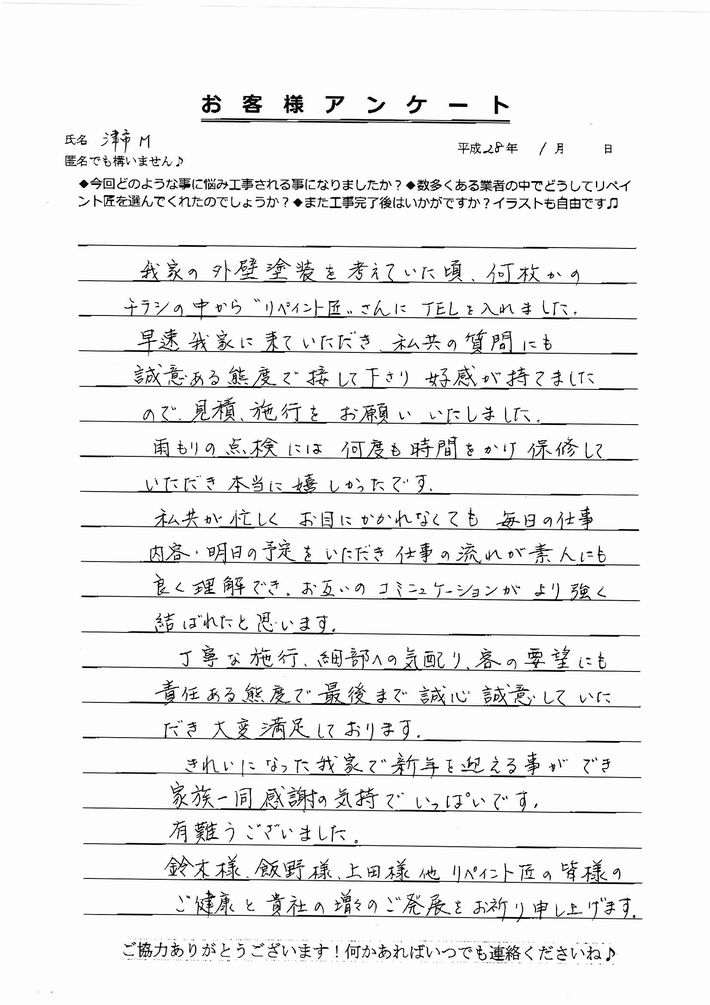 お客様アンケート
氏名 津市M
匿名でも構いません♪
平成28年 1月 日
◆今回どのような事に悩み工事される事になりましたか？◆数多くある業者の中でどうしてリペイ
ント匠を選んでくれたのでしょうか？◆また工事完了後はいかがですか？イラストも自由です♫
我家の外壁塗装を考えていた頃、何枚かの
チラシの中から"リペイント匠"さんにTELを入れました。
早速我家に来ていただき、私共の質問にも
誠意ある態度で接して下さり好感が持てました
ので、見積、施行をお願いいたしました。
雨もりの点検には何度も時間をかけ保修して
いただき本当に嬉しかったです。
私共が忙しくお目にかかれなくても毎日の仕事
内容・明日の予定をいただき仕事の流れが素人にも
良く理解でき、お互いのコミニュケーションがより強く
結ばれたと思います。
丁寧な施行、細部への気配り、客の要望にも
責任ある態度で最後まで誠心誠意していた
だき大変満足しております。
きれいになった我家で新年を迎える事ができ
家族一同感謝の気持でいっぱいです。
有難うございました。
鈴木様、飯野様、上田様他リペイント匠の皆様の
ご健康と貴社の増々のご発展をお祈り申し上げます。
ご協力ありがとうございます！何かあればいつでも連絡くださいね♪